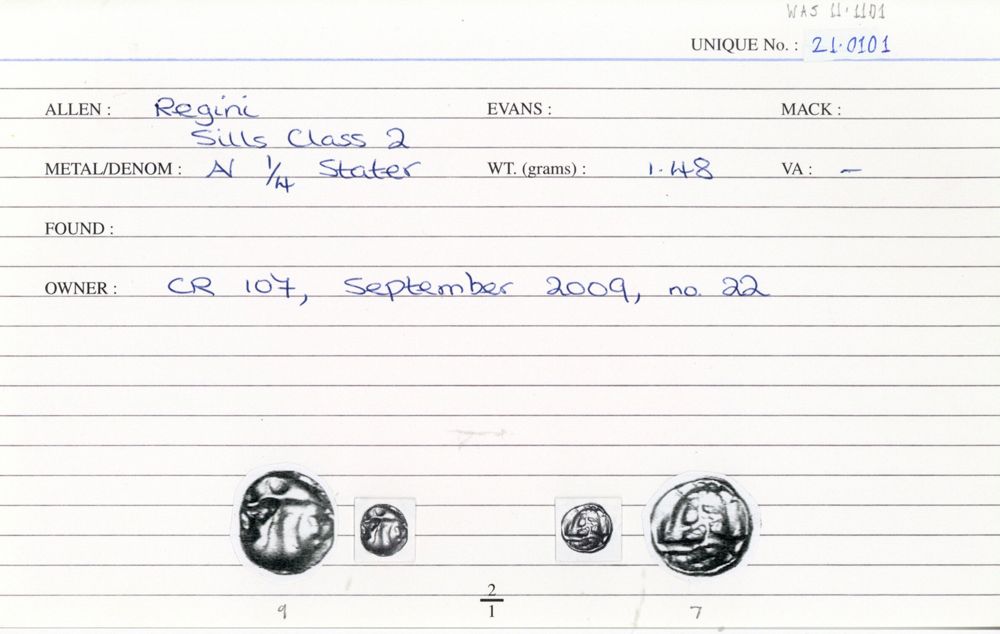 WAS 11·1101
UNIQUE No. : 21·0101
ALLEN : Regini EVANS : MACK :
Sills Class 2
METAL/DENOM : AV 1/4 Stater WT. (grams) : 1·48 VA : –
FOUND :
OWNER : CR 107, September 2009, no. 22
2
1
9 7